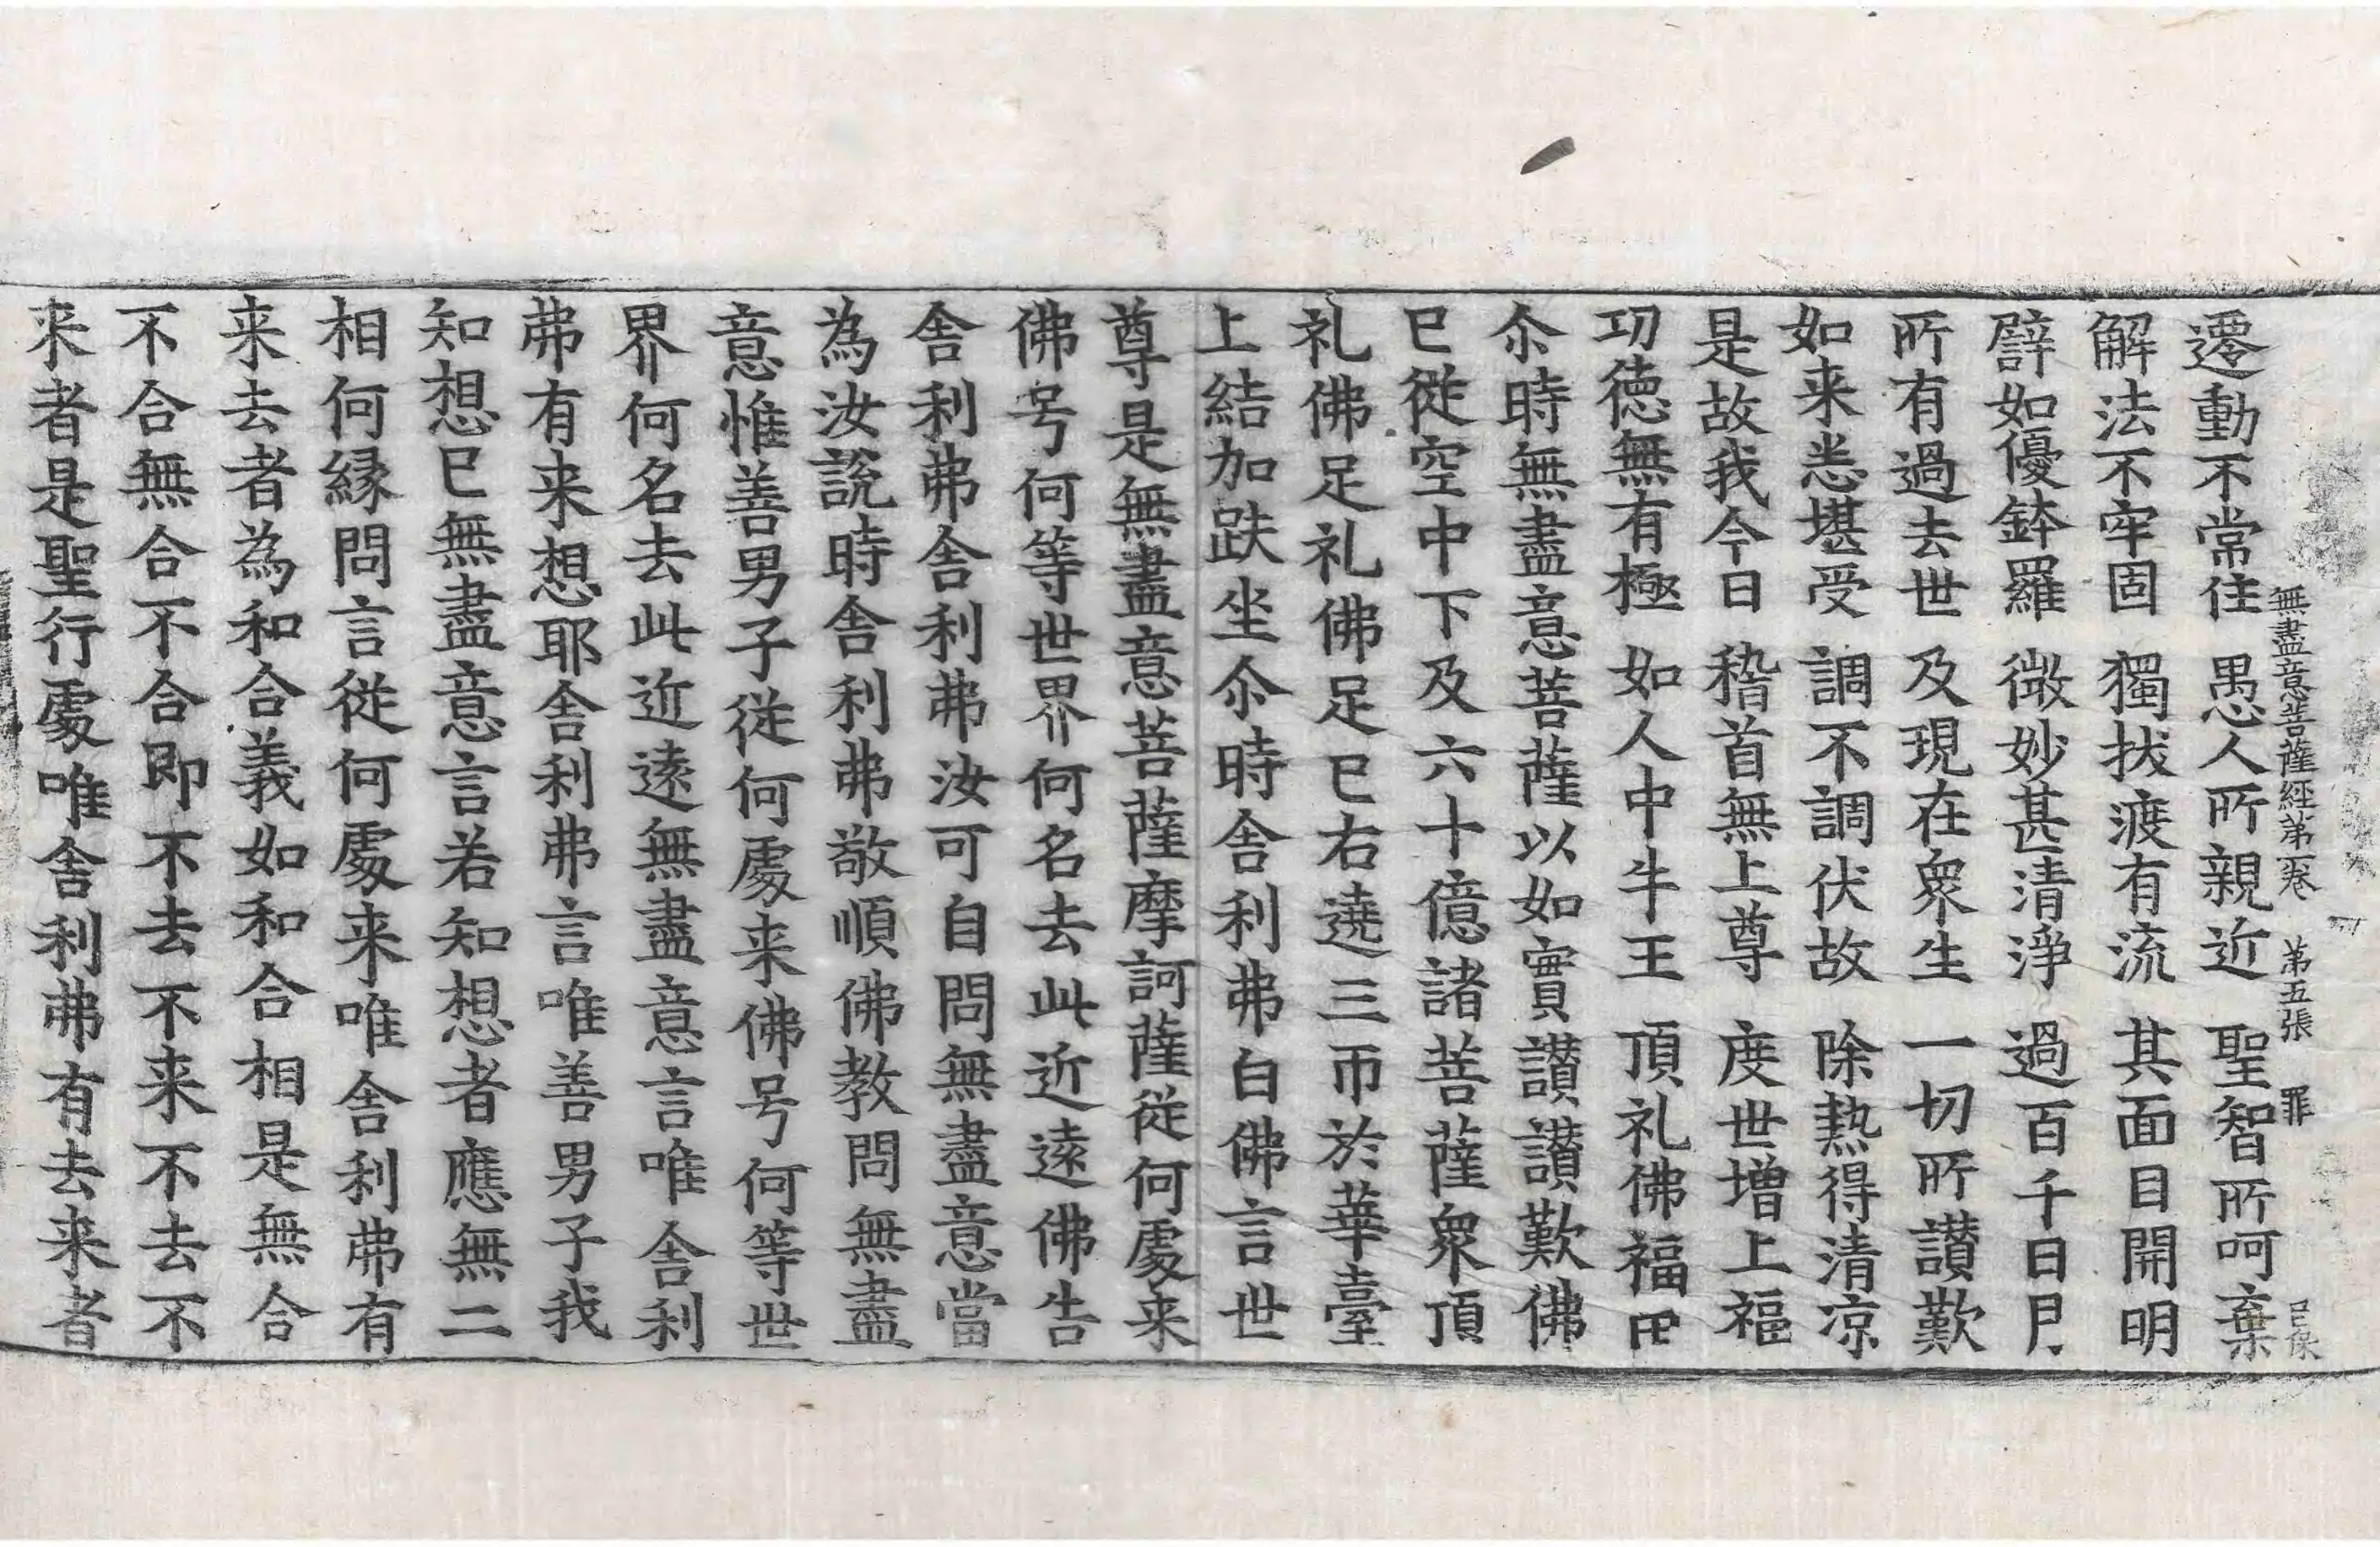 無盡意菩薩經第一卷 第五張 罪
遷動不常住 愚人所親近 聖智所呵棄
解法不牢固 獨拔渡有流 其面目開明
譬如優鉢羅 微妙甚清淨 過百千日月
所有過去世 及現在衆生 一切所讃歎
如来悉堪受 調不調伏故 除熱得清涼
是故我今日 稽首無上尊 度世増上福
功德無有極 如人中牛王 頂礼佛福田
尒時無盡意菩薩以如實讃讃歎佛
已從空中下及六十億諸菩薩衆頂
礼佛足礼佛足已右遶三帀於華臺
上結加趺坐尒時舎利弗白佛言世
尊是無盡意菩薩摩訶薩從何處来
佛号何等世界何名去此近遠佛告
舎利弗舎利弗汝可自問無盡意當
為汝說時舎利弗敬順佛教問無盡
意惟善男子從何處来佛号何等世
界何名去此近遠無盡意言唯舎利
弗有来想耶舎利弗言唯善男子我
知想已無盡意言若知想者應無二
相何縁問言從何處来唯舎利弗有
来去者為和合義如和合相是無合
不合無合不合即不去不来不去不
来者是聖行處唯舎利弗有去来者